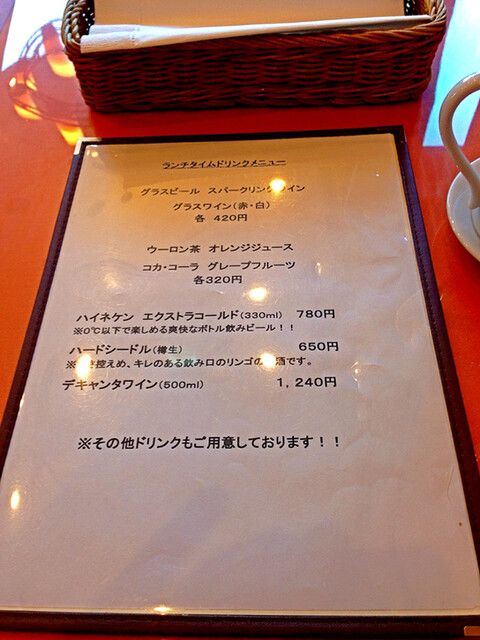 ランチタイムドリンクメニュー
グラスビール スパークリングワイン
グラスワイン(赤・白)
各 420円
ウーロン茶 オレンジジュース
コカ・コーラ グレープフルーツ
各320円
ハイネケン エクストラコールド(330ml) 780円
※0℃以下で楽しめる爽快なボトル飲みビール！！
ハードシードル(樽生) 650円
※ さ控えめ、キレのある飲み口のリンゴの 酒です。
デキャンタワイン(500ml) 1,240円
※その他ドリンクもご用意しております！！